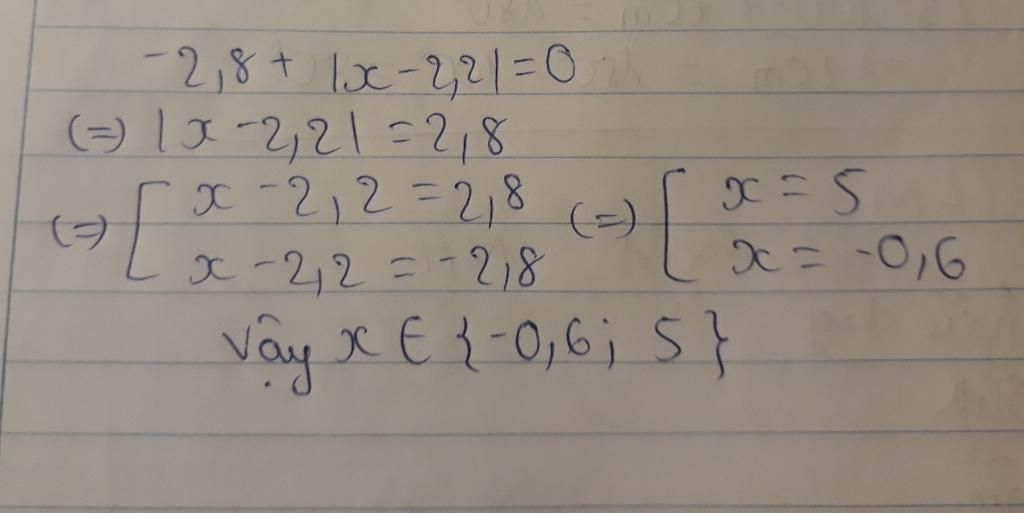 -2,8 + |x - 2,2| = 0
(=) |x - 2,2| = 2,8
(=) [ x - 2,2 = 2,8 (=) [ x = 5
x - 2,2 = -2,8 x = -0,6
Vậy x ∈ {-0,6; 5}